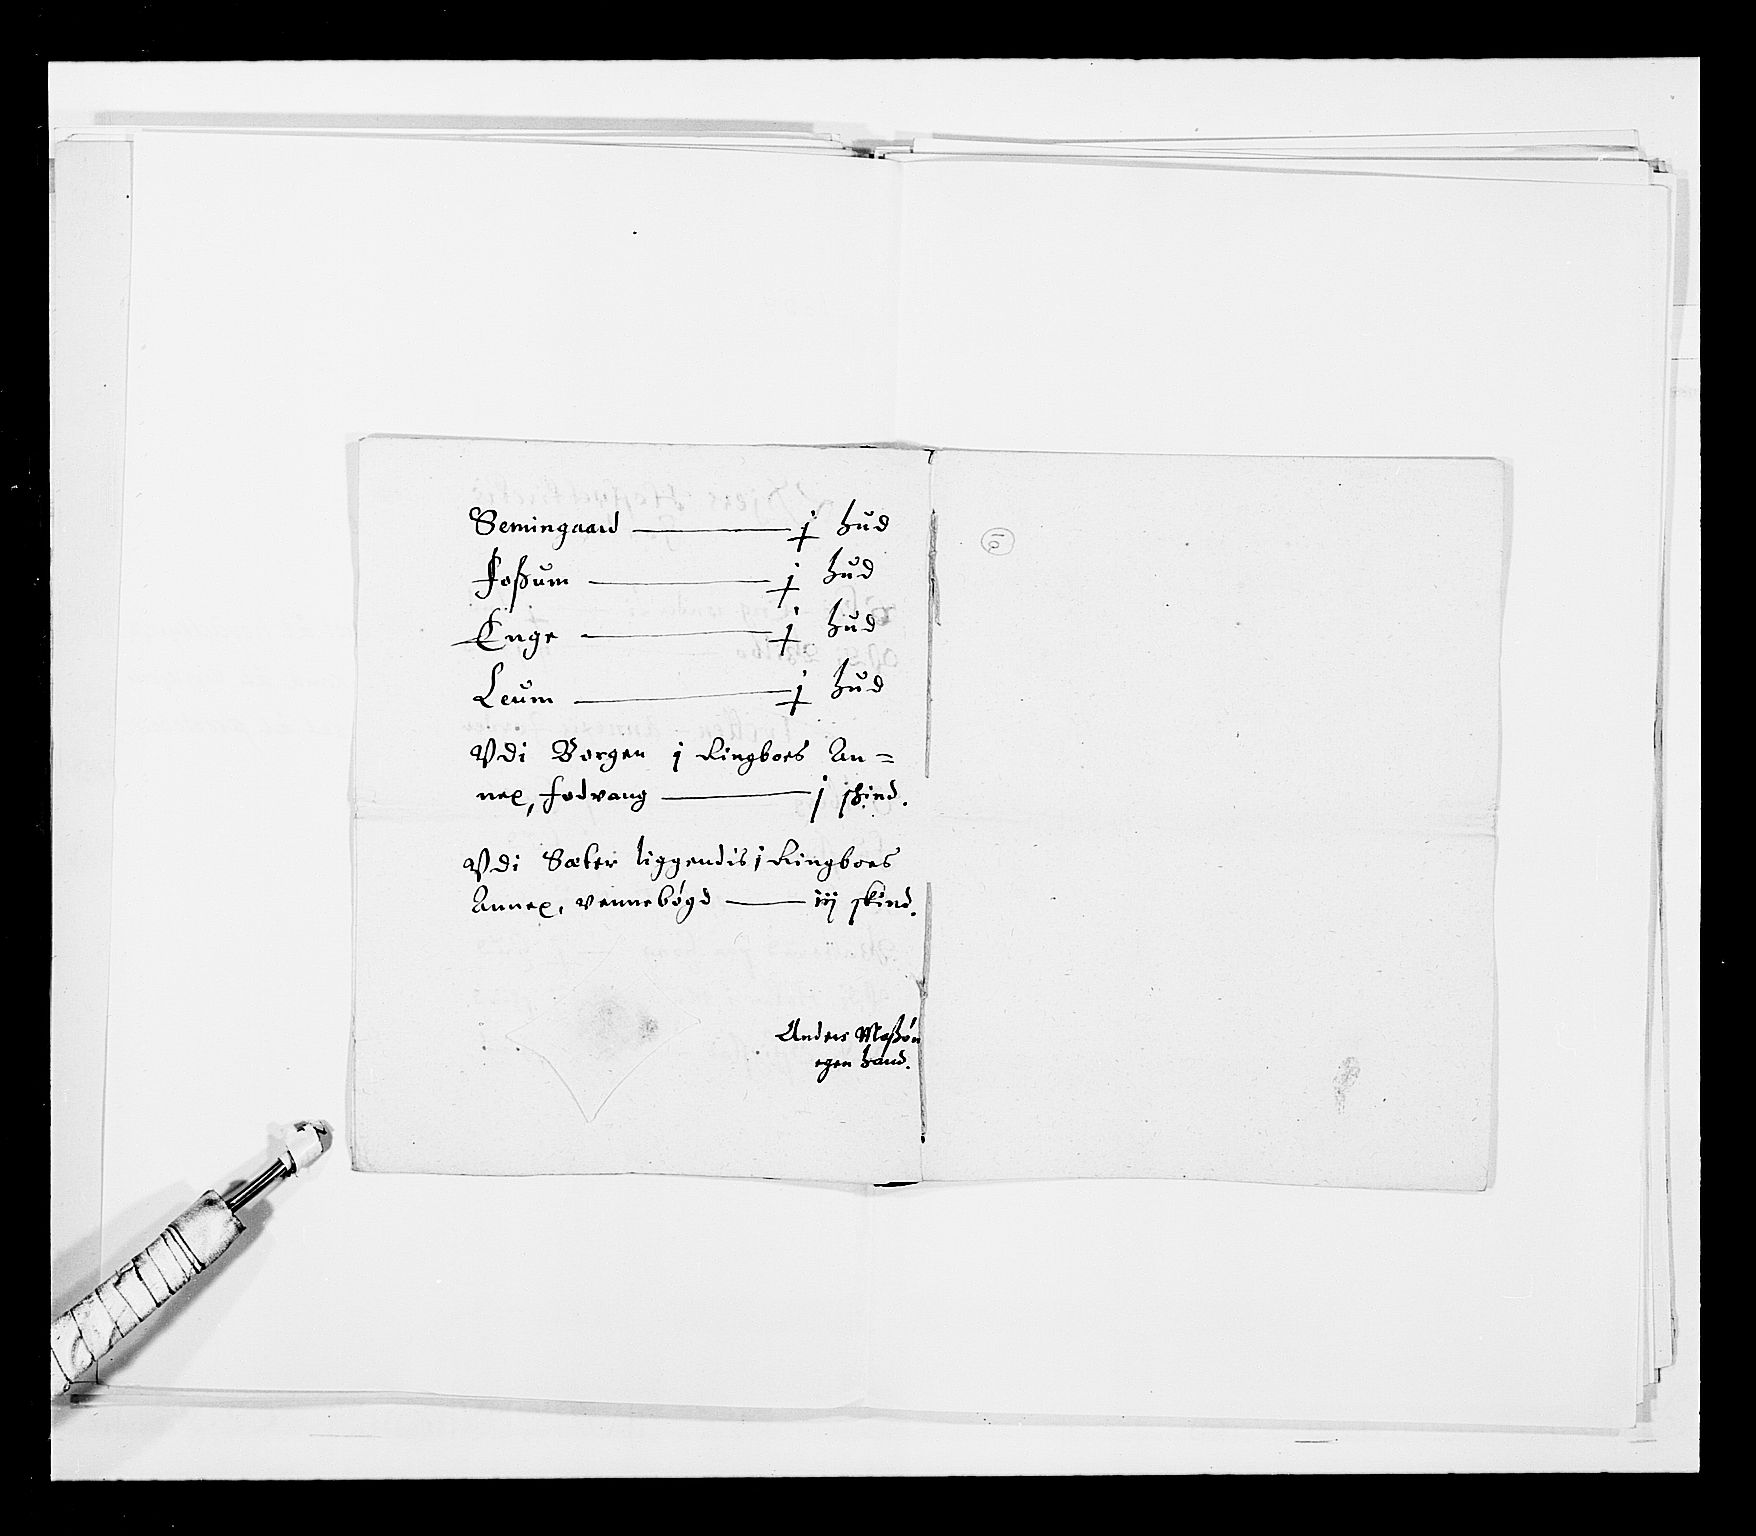 Semingaard — j hud
Foßum — j hud
Enge — j hud
Leum — j hud
Vdi Borgen j Ringboes An=
nex, fodvang — j skind.
Vdi Sæter liggendis j Ringboes
Annex, Vennebögd — iij skind.
Anders Maßön
egen hand.